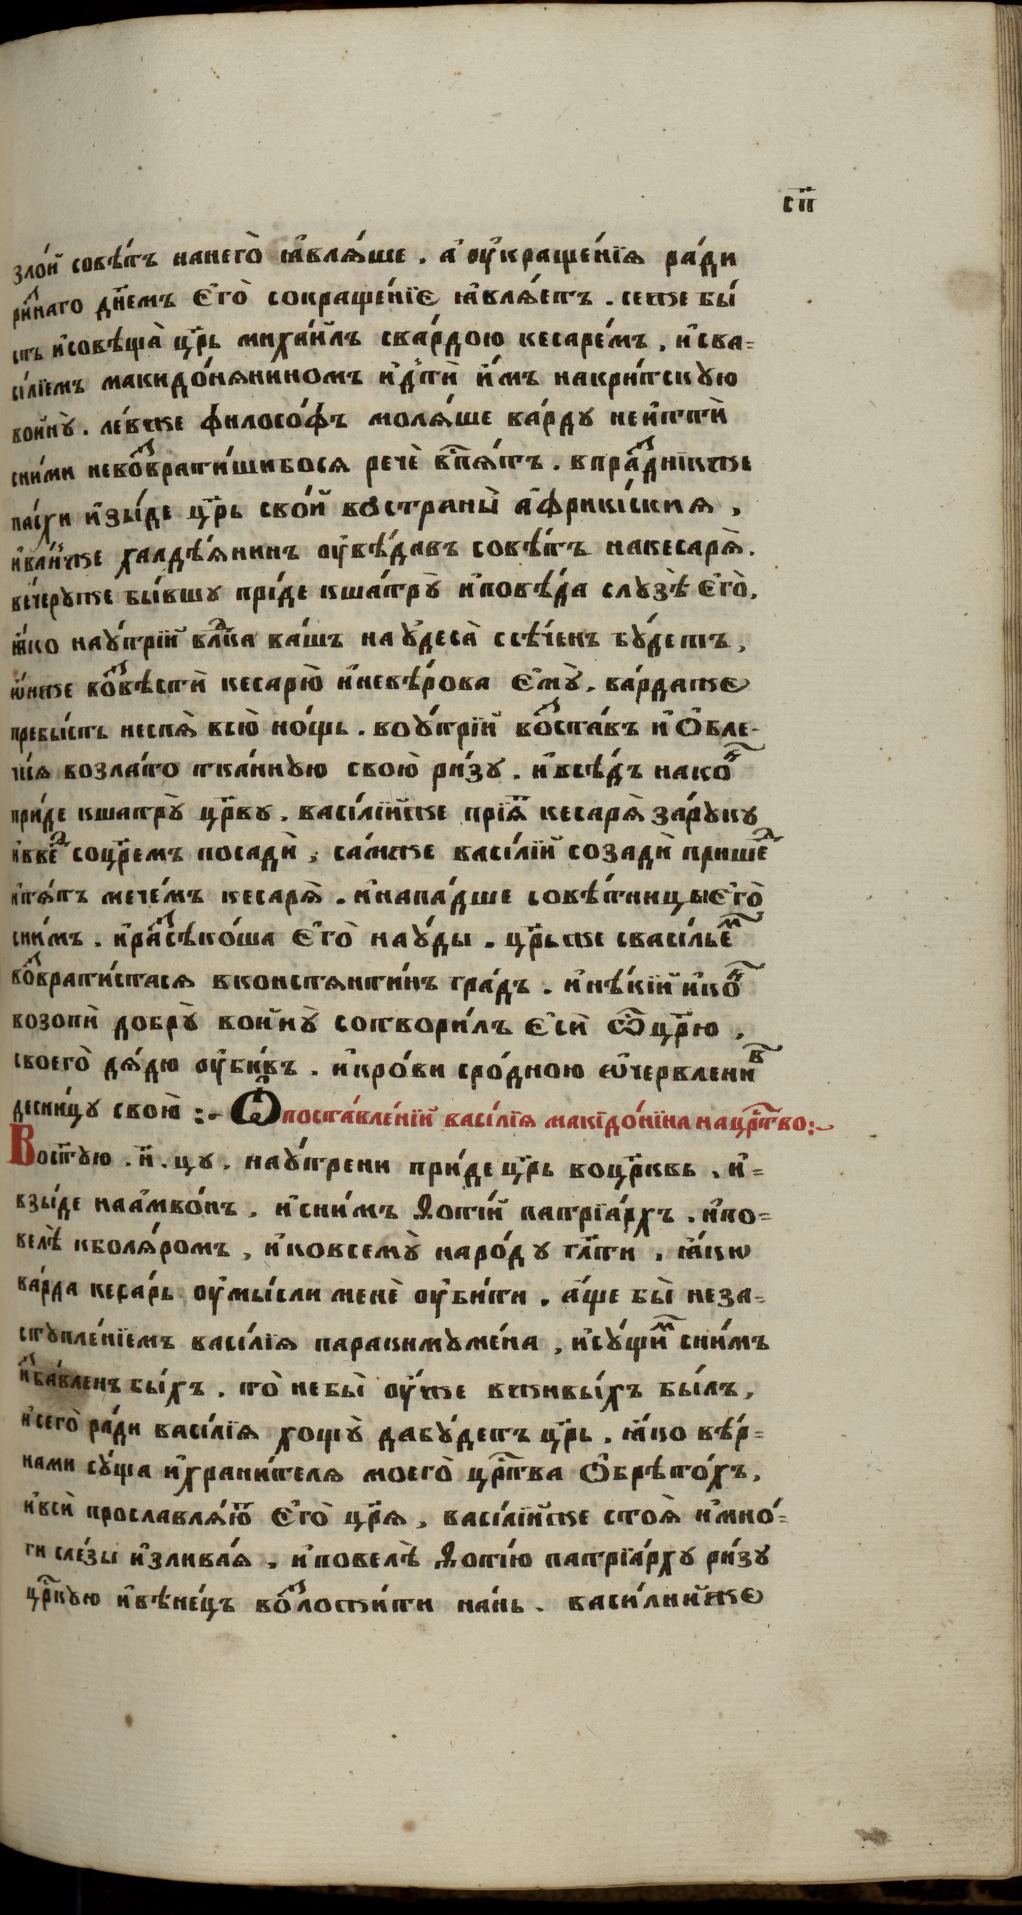 сп҃
зло́й совѣ́тъ нанего̀ ꙗ҆влѧ́ше . а҆ оу҆краще́нїѧ ра́ди
ри́ꙁнаго дн҃емъ є҆го̀ сокраще́нїе ꙗ҆влѧ́етъ . сеже бы́
сть и҆совѣща̀ цр҃ь михаи́лъ сва́рдою кесаре́мъ , и҆сва-
сі́лїемъ макидо́нѧниномъ и҆дтѝ и҆́мъ накри́тскую
войнꙋ̀ . ле́вже филосо́фъ молѧ́ше ва́рду неи҆ттѝ
сни́ми невоꙁврати́шибосѧ речѐ вспѧ́ть . впра́ꙁдникже
па́схи и҆зы́де цр҃ь сво́й востраны̀ а҆фрикі́скиѧ ,
и҆ва́нже халдѣ́ѧнинъ оу҆вѣ́давъ совѣ́тъ накесарѧ̀ .
ве́черуже бы́вшу прі́де кшатрꙋ̀ и҆повѣ́да слузѣ̀ є҆го̀ ,
ꙗ҆́ко нау́трїй влⷣка ва́шъ на у҆деса̀ сѣ́ченъ бу́детъ ,
ѡ҆́нже воꙁвѣстѝ кесарю̀ и҆невѣ́рова є҆мꙋ̀ . ва́рдаже
пребы́сть неспѧ̀ всю̀ но́щь . воу́трїй воꙁста́въ и҆ ѻ҆бле-
ѱ́сѧ возла́то тка́нную свою̀ ри́зу . и҆всѣ́дъ нако́н
прі́де кшатрꙋ̀ цр҃ву . васі́лїйже прїѧ́т кесарѧ̀ за́руку
и҆вве́д соцр҃емъ посадѝ , са́мже васі́лїй созадѝ прише́д
и҆тѧ́тъ мече́мъ кесарѧ̀ . и҆напа́дше совѣ́тницы є҆го̀
сни́мъ . и҆раꙁсѣко́ша є҆го̀ нау́ды . цр҃ьже свасі́льем
воꙁврати́стасѧ вконстѧнти́нъ гра́дъ . и҆нѣ́кїй и҆но́к
возопѝ добрꙋ̀ войнꙋ̀ сотвори́лъ є҆сѝ ѽ цр҃ю ,
своего̀ дѧ́дю оу҆би́въ . и҆кро́ви сро́дною ѡ҆червлени́в
десни́цу свою̀ :~ Ѡ҆ поставле́нїй васі́лїѧ макідо́нїина нацр҃тво :~
Востꙋ́ю . н҃ . цу . нау́трени прі́де цр҃ь воцр҃ковь . и҆-
взы́де наа҆мво́нъ , и҆сни́мъ Ѳоті́й патрїа́рхъ . и҆по-
велѣ̀ кболѧ́ромъ , и҆ковсемꙋ̀ наро́ду гл҃ти . ꙗ҆́кѡ
ва́рда кеса́рь оу҆мы́сли менѐ оу҆би́ти . а҆́ще бы̀ неза-
стꙋпле́нїемъ васі́лїѧ паракимꙋме́на , и҆су́щим сни́мъ
и҆ꙁба́вленъ бы́хъ . то̀ небы̀ оу҆́же вживы́хъ бы́лъ ,
и҆сего̀ ра́ди васі́лїѧ хощꙋ̀ дабу́детъ цр҃ь . ꙗ҆́ко вѣ́р-
нами су́ща и҆храни́телѧ моего̀ цр҃тва ѻ҆брѣто́хъ ,
и҆всѝ прославлѧ́ю є҆го̀ цр҃ѧ , васі́лїйже стоѧ̀ и҆мно́-
ги сле́зы и҆злива́ѧ , и҆повелѣ̀ Ѳоті́ю патрїа́рху ри́зу
цр҃кую и҆вѣне́цъ воꙁложи́ти на́нь . васи́лийже